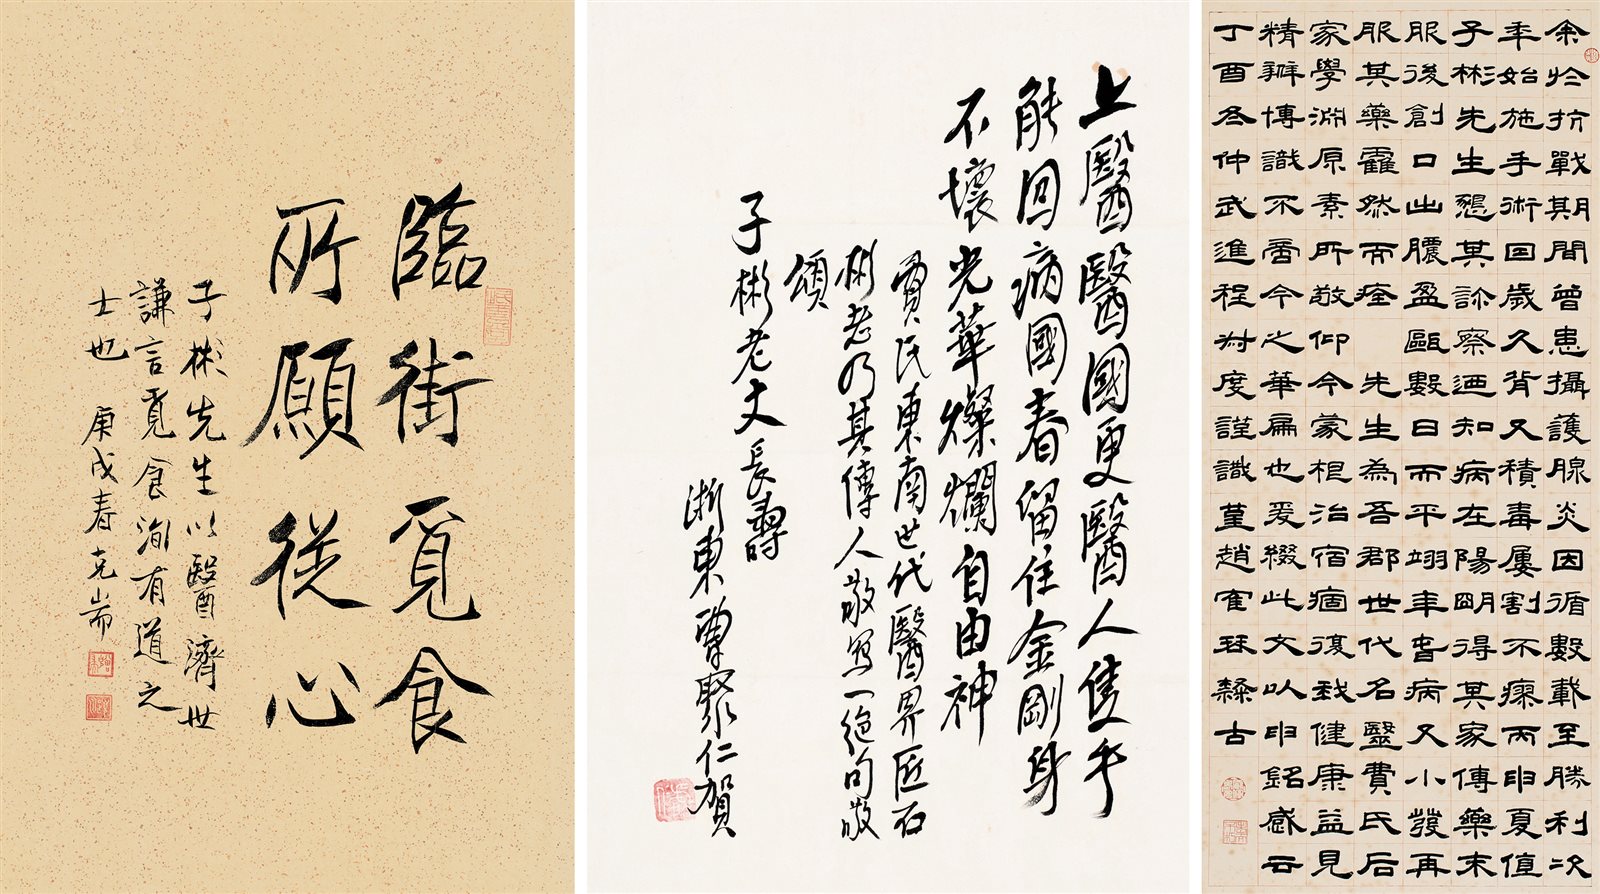 臨街覓食
所願從心
子彬先生以醫濟世
謙言覓食洵有道之
士也 庚戌春克耑
上醫醫國更醫人隻手
能回病國春留住金剛身
不壞光華燦爛自由神
費氏東南世代醫界匠石
彬老乃其傳人敬寫一絕句敬
頌
子彬老丈長壽
浙東曹聚仁賀
余於抗戰期間曾患攝護腺炎因循數載至勝利次
年始施手術囙歲久背又積毒屢割不瘳丙申夏值
子彬先生懇其診察迺知病在陽明得其家傳藥末
服後創口出膿盈甌數日而平翊年旾病又小發再
服其藥靃然而痊 先生為吾郡世代名醫費氏后
家學淵原素所敬仰今蒙根治宿痼復我健康益見
精辨博識不啻今之華扁也爰綴此文以申銘感云
丁酉冬仲武進程度謹識趙宧隸古